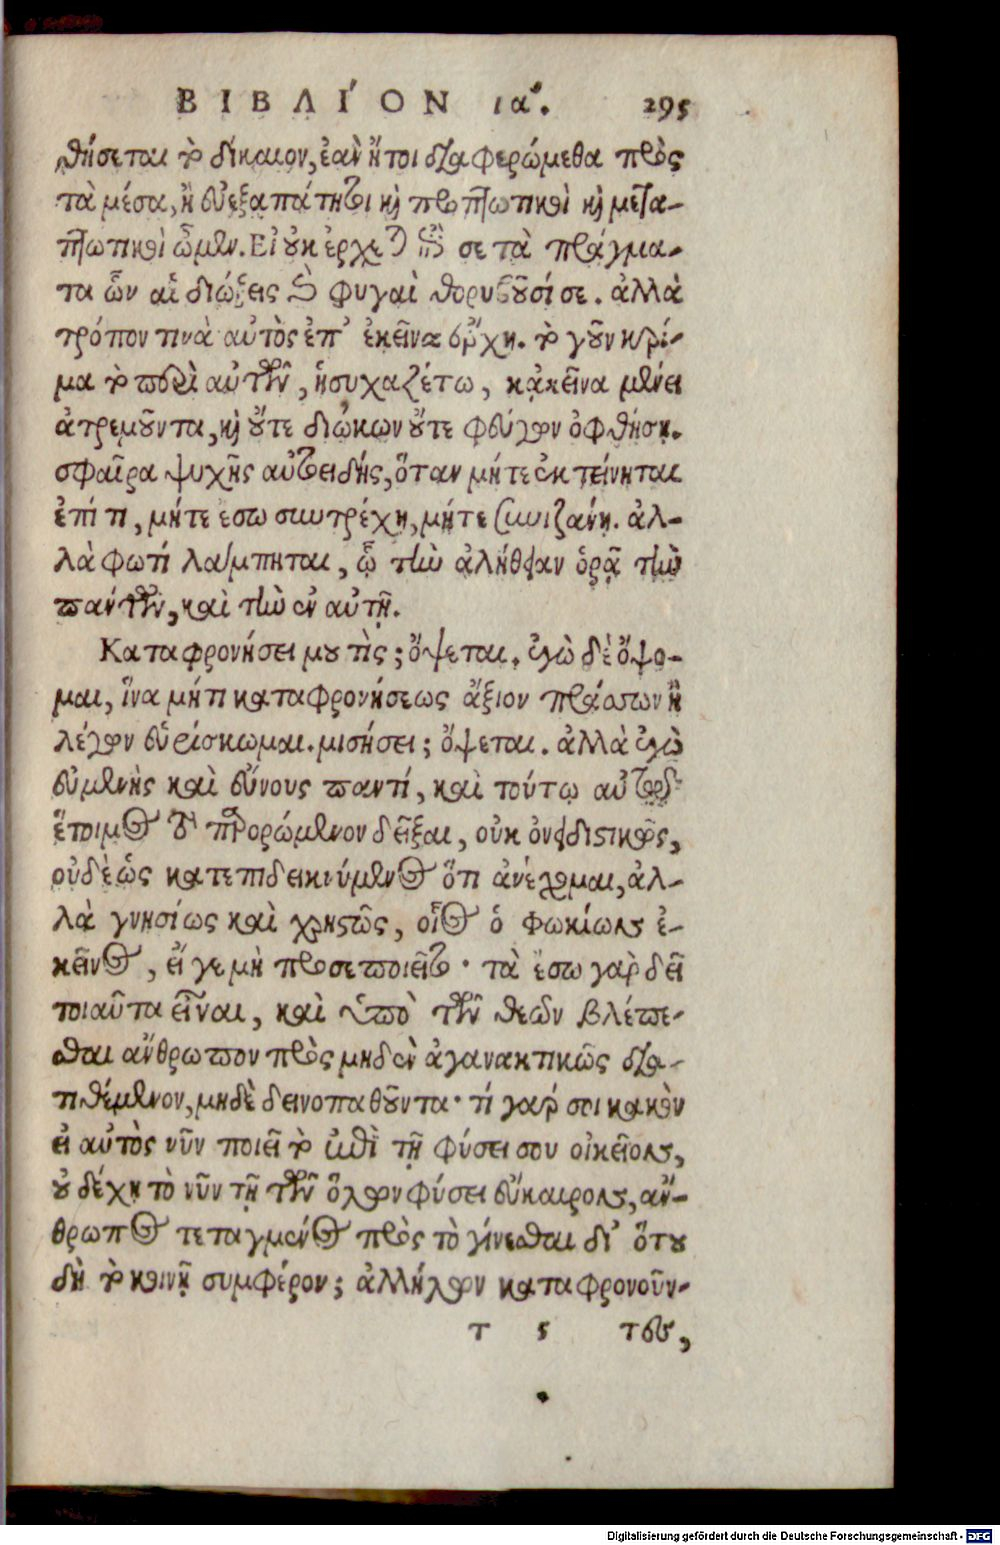 ΒΙΒΛΊΟΝ ια. 295
θήσεται τὸ δίκαιον, ἐὰν ἤτοι διαφερώμεθα πρὸς
τὰ μέσα, ἢ εὐεξαπάτητοι καὶ προπτωτικοὶ καὶ μετα-
πτωτικοὶ ὦμεν. Εἰ οὐκ ἔρχεται ἐπὶ σε τὰ πράγμα-
τα ὧν αἱ διώξεις καὶ φυγαὶ θορυβοῦσί σε. ἀλλὰ
τρόπον τινὰ αὐτὸς ἐπ' ἐκεῖνα ἔρχῃ. τὸ γοῦν κρί-
μα τὸ περὶ αὐτῶν, ἡσυχαζέτω, κἀκεῖνα μένει
ἀτρεμοῦντα, καὶ οὔτε διώκων οὔτε φεύγων ὀφθήσῃ.
σφαῖρα ψυχῆς αὐτοειδής, ὅταν μήτε ἐκτείνηται
ἐπί τι, μήτε ἔσω συντρέχῃ, μήτε συνιζάνῃ. ἀλ-
λὰ φωτὶ λάμπηται, ᾧ τὴν ἀλήθειαν ὁρᾷ τὴν
πάντων, καὶ τὴν ἐν αὐτῇ.
Καταφρονήσει μου τὶς; ὄψεται. ἐγὼ δὲ ὄψο-
μαι, ἵνα μήτι καταφρονήσεως ἄξιον πράσσων ἢ
λέγων εὑρίσκωμαι. μισήσει; ὄψεται. ἀλλὰ ἐγὼ
εὐμενὴς καὶ εὔνους παντί, καὶ τούτῳ αὐτῷ
ἕτοιμος τὸ παρορώμενον δεῖξαι, οὐκ ὀνειδιστικῶς,
οὐδὲ ὡς κατεπιδεικνύμενος ὅτι ἀνέχομαι, ἀλ-
λὰ γνησίως καὶ χρηστῶς, οἷος ὁ Φωκίων ἐ-
κεῖνος, εἴ γε μὴ προσεποιεῖτο· τὰ ἔσω γὰρ δεῖ
τοιαῦτα εἶναι, καὶ ὑπὸ τῶν θεῶν βλέπε-
σθαι ἄνθρωπον πρὸς μηδὲν ἀγανακτικῶς δια-
τιθέμενον, μηδὲ δεινοπαθοῦντα· τί γάρ σοι κακὸν
εἰ αὐτὸς νῦν ποιεῖ τὸ ἐπὶ τῇ φύσει σου οἰκεῖον,
οὐ δέχῃ τὸ νῦν τῇ τῶν ὅλων φύσει εὔκαιρον, ἄν-
θρωπος τεταγμένος πρὸς τὸ γίνεσθαι δι' ὅτου
δὴ τὸ κοινῇ συμφέρον; ἀλλήλων καταφρονοῦν-
τ 5 τες,
Digitalisierung gefördert durch die Deutsche Forschungsgemeinschaft - DFG